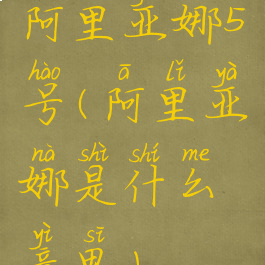 阿里亚娜5
hào ā lǐ yà
号(阿里亚
nà shì shí me
娜是什么
yì sī
意思)